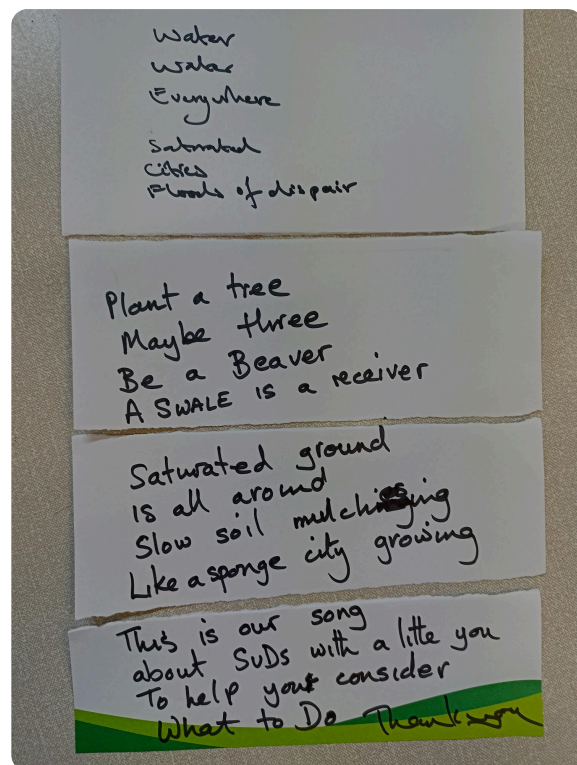 Water
Water
Everywhere
Saturated
Cities
Floods of dispair
Plant a tree
Maybe three
Be a Beaver
A SWALE is a receiver
Saturated ground
is all around
Slow soil mulching
Like a sponge city growing
This is our song
about SuDs with a litte you
To help you consider
What to Do Thankyou